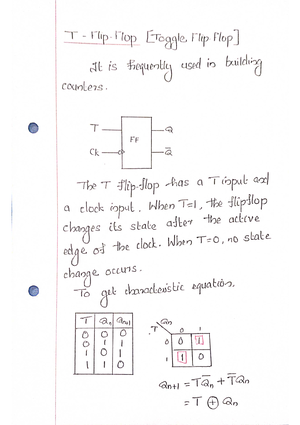 T - Flip-Flop [Toggle Flip Flop]
It is frequently used in building
counters.
T
Q
FF
Ck
Q̅
The T flip-flop has a T input and
a clock input. When T=1, the flipflop
changes its state after the active
edge of the clock. When T=0, no state
change occurs.
To get characteristic equation.
T Qn Qn+1
0 0 0
0 1 1
1 0 1
1 1 0
T Qn 0 1
0 0 1
1 1 0
Qn+1 = TQ̅n + T̅Qn
= T ⊕ Qn